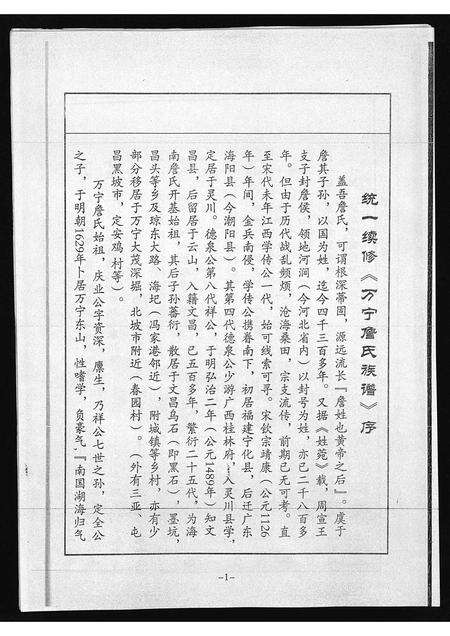 统一续修《万宁詹氏族谱》序
盖吾詹氏，可谓根深蒂固，源远流长『詹姓也黄帝之后』。虞于
詹其子孙，以国为姓，迄今四千三百多年。又据《姓苑》载，周宣王
支子封詹侯，领地河涧（今河北省内）以封号为姓，亦已二千八百多
年。但由于历代战乱频烦，沧海桑田，宗支流传，前期已无可考。直
至宋代末年江西学传公一代，始可线索可寻。宋钦宗靖康（公元1126
年）年间，金兵南侵，学传公携眷南下，初居福建宁化县，后迁广东
海阳县（今潮阳县）。其第四代德泉公少游广西桂林府，入灵川县学，
定居于灵川。德泉公第八代祥公，于明弘治二年（公元1489年）知文
昌县，后留居于云山，入籍文昌，已五百多年，繁衍二十五代，为海
南詹氏开基始祖，其后子孙蕃衍，散居于文昌乌石（即黑石），墨坑，
昌头等乡及琼东大路、海圯（冯家港邻近），附城镇等乡村，亦有少
部分移居于万宁大茂深掘，北坡市附近（春园村）。（外有三亚、屯
昌黑坡市，定安鸡村等）。
万宁詹氏始祖，庆业公字资深，廪生，乃祥公七世之孙，定全公
之子，于明朝1629年卜居万宁东山，性嗜学，负豪气，『南国湖海归气
-1-